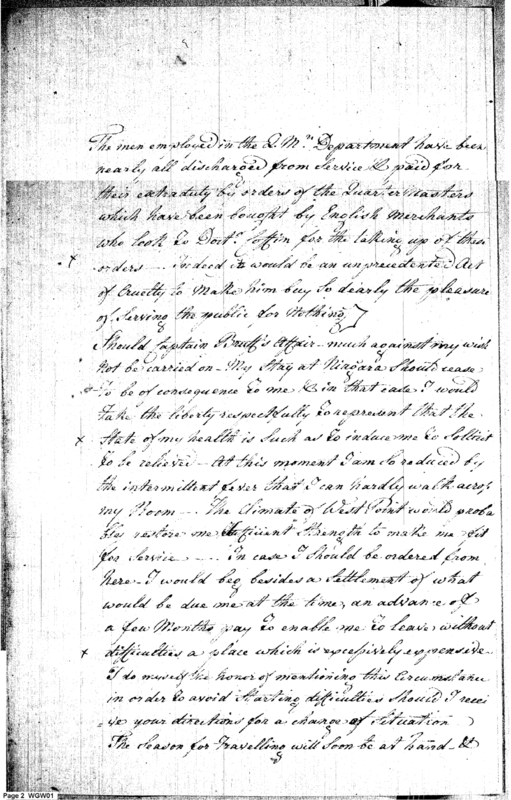 The men employed in the Q. Mrs. Department have been
nearly all discharged from Service & paid for
their extraduty by orders of the Quarter Masters
which have been bought by English Merchants
who look to Doctr. Coffin for the taking up of these
x orders — indeed it would be an unprecedented Act
of Cruelty to make him buy so dearly the pleasure
of Serving the public for Nothing]
Should Captain Bruff's Affair — much against my wish
Not be carried on — My Stay at Niagara Should cease
to be of consequence to me & in that case I would
take the liberty respectfully to represent that the
x State of my health is Such as to induce me to Sollicit
to be relieved — At this moment I am So reduced by
the intermittent fever that I can hardly walk across
my Room — The Climate of West Point would proba
bly restore me Sufficient Strength to make me fit
for Service — . . In case I Should be ordered from
here — I would beg besides a Settlement of what
would be due me at the time, an advance of
a few Months pay to enable me to leave without
x difficulties a place which is excessively expensive —
I do myself the honor of mentioning this Circumstance
in order to avoid Starting difficulties Should I recei
ve your directions for a change of Situation
The Season for Travelling will Soon be at hand &
Page 2 WGW01